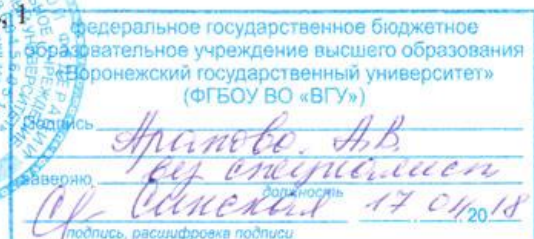 , 1
федеральное государственное бюджетное
образовательное учреждение высшего образования
«Воронежский государственный университет»
(ФГБОУ ВО «ВГУ»)
Подпись Арапова А.В.
заверяю вед специалист
должность
Синская 17 04 20 18
подпись, расшифровка подписи